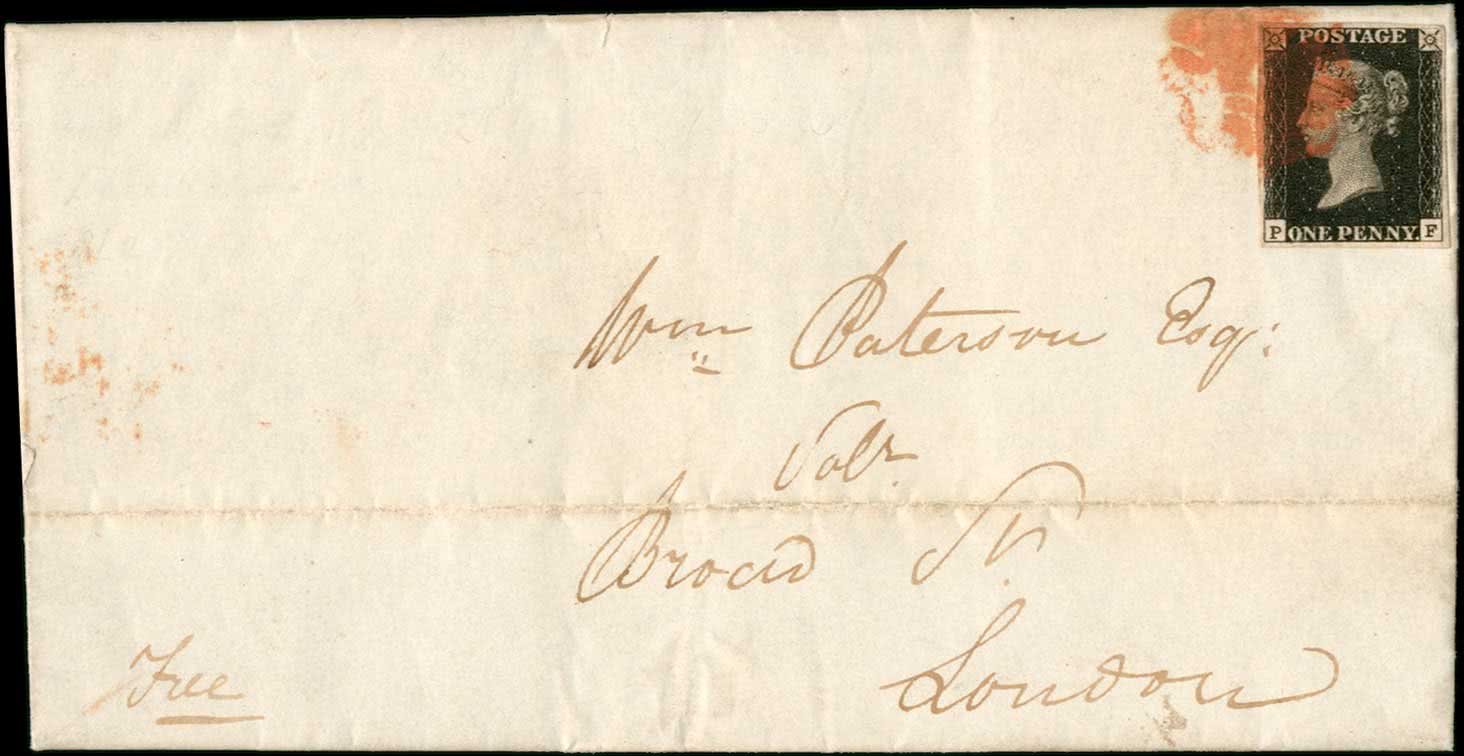 POSTAGE
P ONE PENNY. F
Wm Paterson Esqr:
Solr.
Broad St.
London
Free